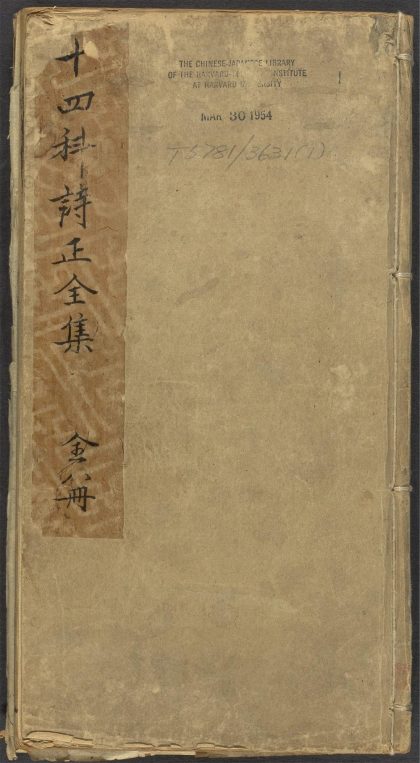 十四科詩正全集
全八冊
THE CHINESE-JAPANESE LIBRARY
OF THE HARVARD- INSTITUTE
AT HARVARD
MAR 30 1954
T5781/3631(1)